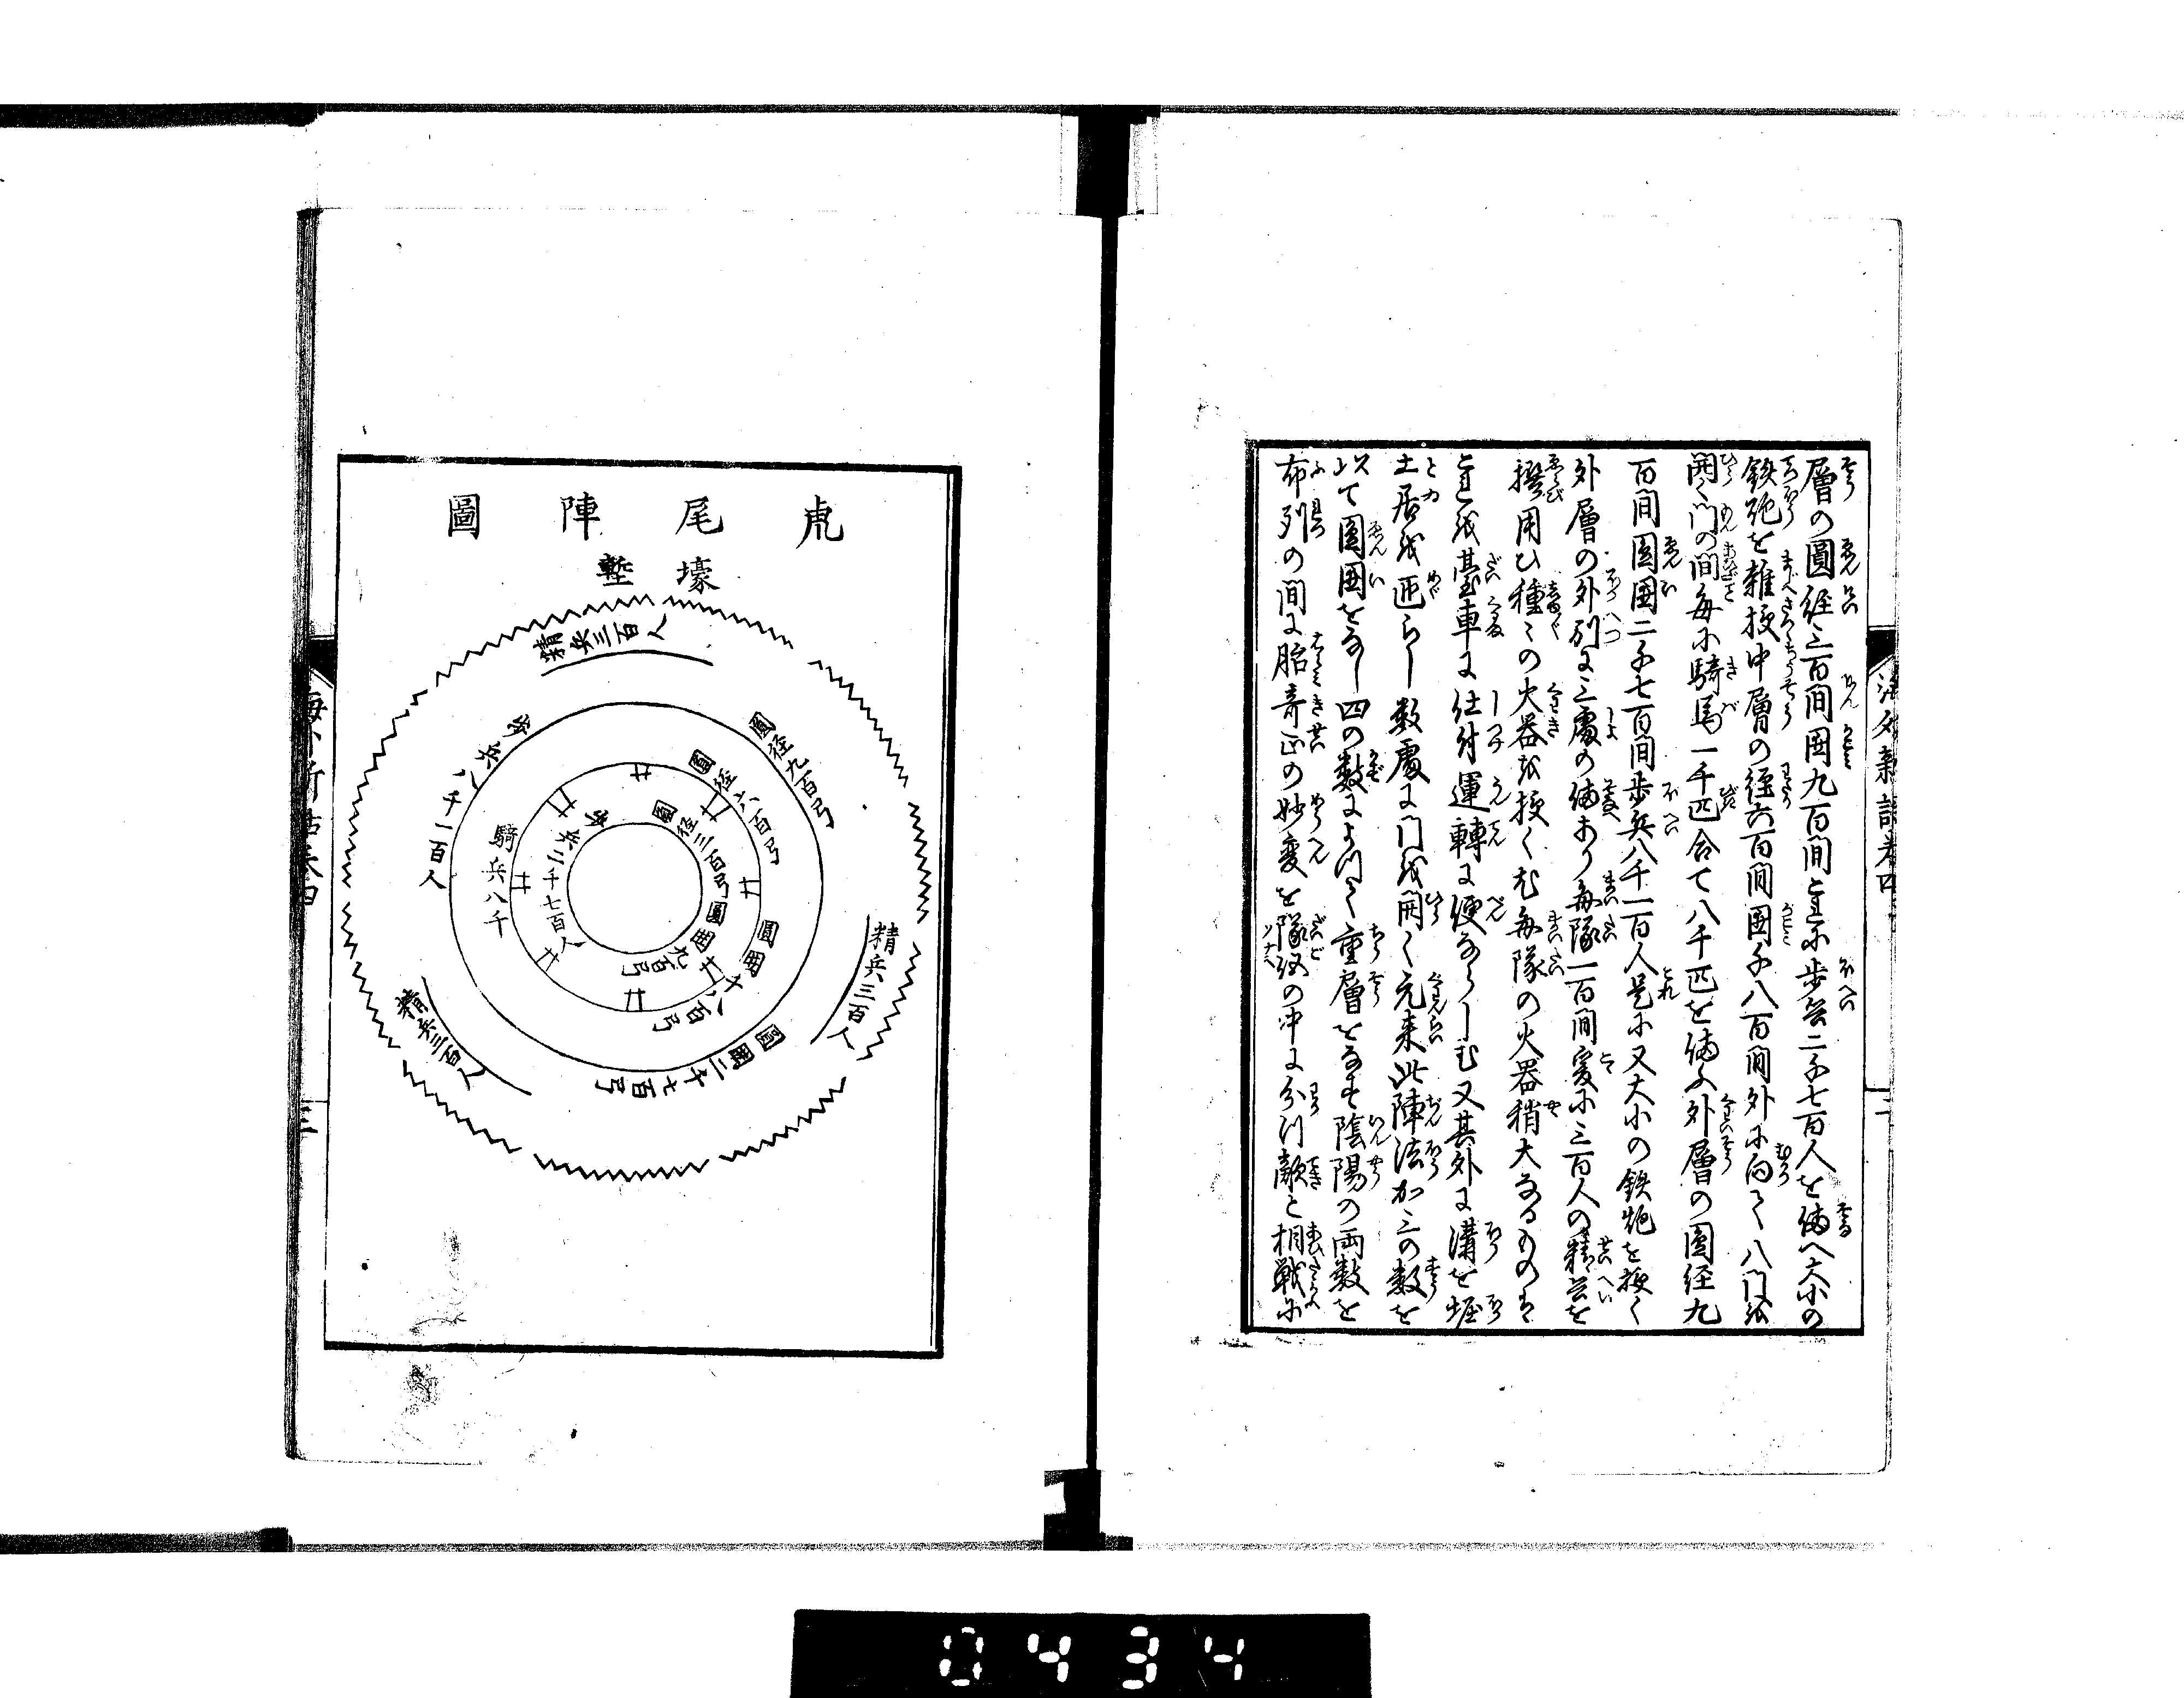 層の圓径三百間囲九百間是に歩兵二千七百人を備へ大小の
鉄炮を雜挾中層の径六百間囲千八百間外に向て八門を
開く門の間毎に騎馬一千匹合て八千匹を備ふ外層の圓径九
百間圓囲二千七百間歩兵八千一百人是に又大小の鉄炮を挾く
外層の外列に三處の備あり毎隊一百間爰に三百人の精兵を
撰用ひ種々の火器を挾くむ毎隊の火器稍大なるものは
是を臺車に仕付運轉に便ならしむ又其外に溝を堀
土居を廻らし數處に門を開く元来此陣法か三の數を
以て圓囲をなし四の數によりて重層をなす陰陽の両數を
布列の間に胎竒正の妙変を隊伍の中に分ハ敵と相戦に
虎尾陣圖
壕塹
精兵三百人
歩兵八千一百人
圓径九百弓
圓径六百弓
圓径三百弓
歩兵二千七百人
騎兵八千
圓囲九百弓
圓囲千八百弓
圓囲二千七百弓
精兵三百人
精兵三百人
三
0434